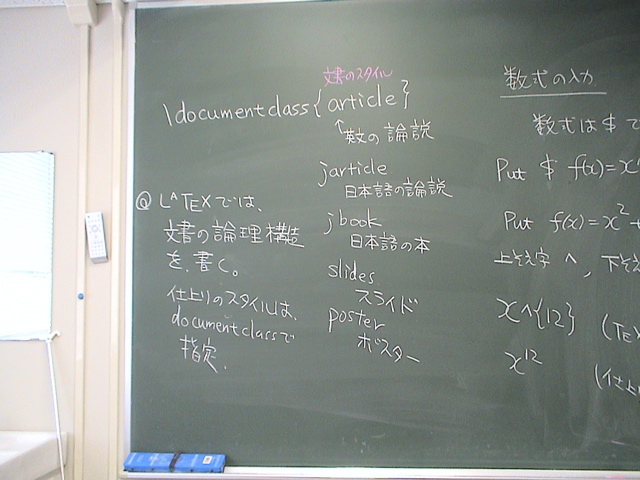 文書のスタイル
\documentclass{article}
↑英文の論説
jarticle
日本語の論説
jbook
日本語の本
slides
スライド
poster
ポスター
@ LATEXでは、
文書の論理構造
を書く。
仕上りのスタイルは、
documentclassで
指定.
数式の入力
数式は$で
Put $ f(x)=x
Put f(x)=x²+
上そえ字 ^, 下そえ
x^{12} (TEX
x¹² (仕上